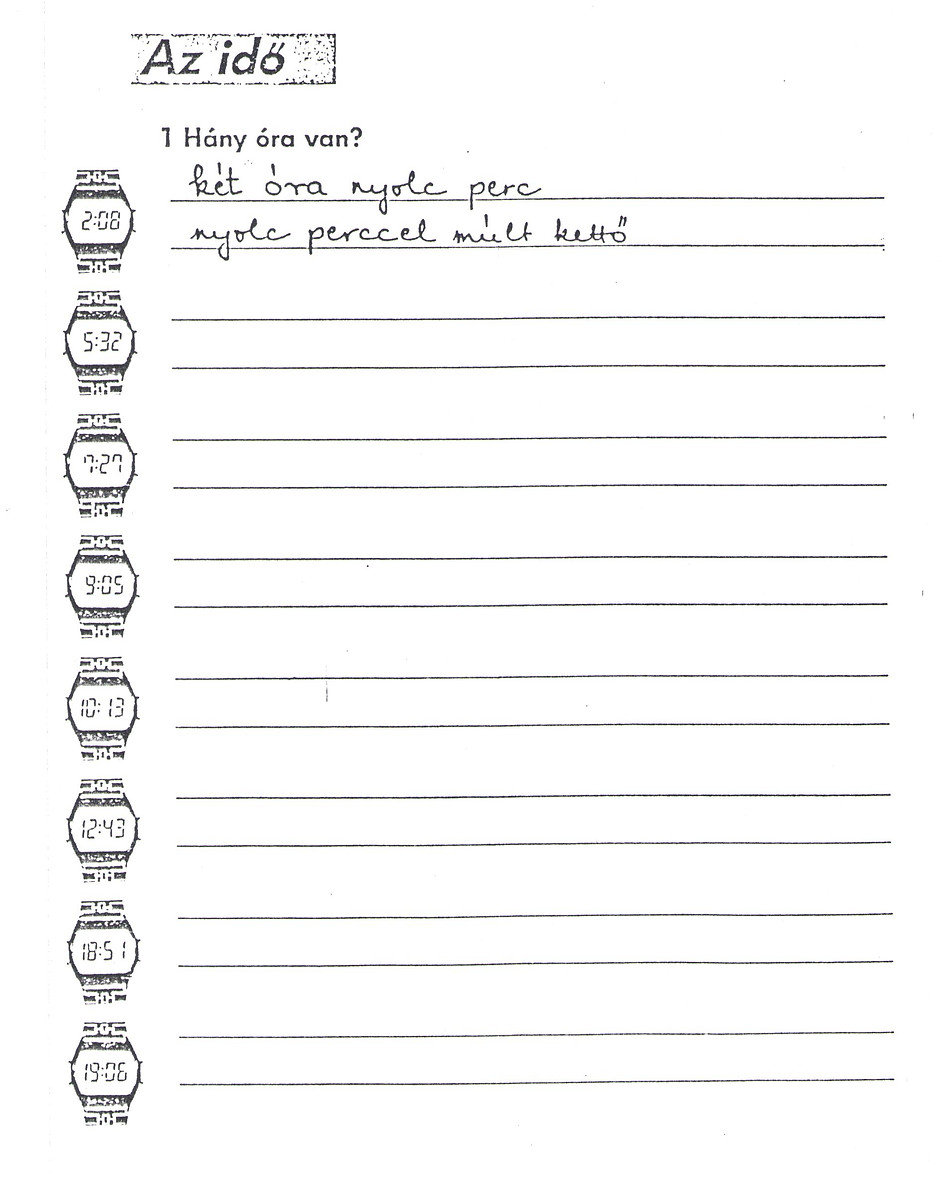 Az idő
1 Hány óra van?
két óra nyolc perc
2:08
nyolc perccel múlt kettő
5:32
7:27
9:05
10:13
12:43
18:51
19:06